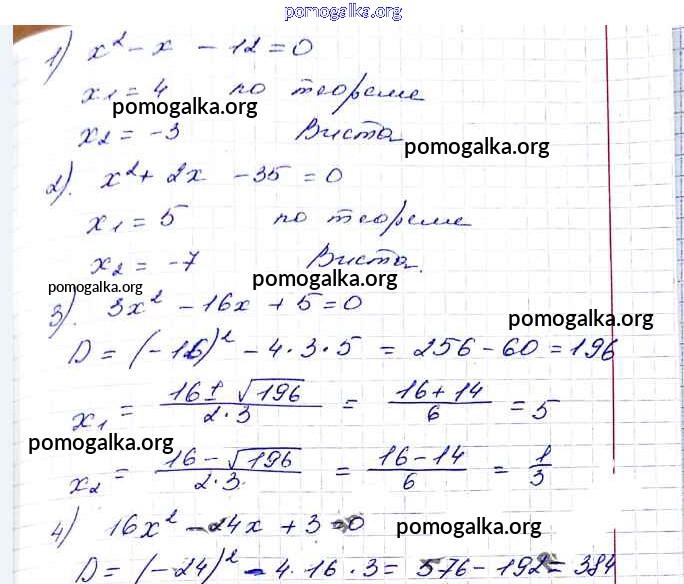 pomogalka.org
1) x² - x - 12 = 0
x₁ = 4 по теореме
pomogalka.org
x₂ = -3 Виета
pomogalka.org
2). x² + 2x - 35 = 0
x₁ = 5 по теореме
x₂ = -7 Виета.
pomogalka.org
pomogalka.org
3). 3x² - 16x + 5 = 0
pomogalka.org
D = (-16)² - 4·3·5 = 256 - 60 = 196
x₁ = (16 ± √196)/(2·3) = (16 + 14)/6 = 5
pomogalka.org
x₂ = (16 - √196)/(2·3) = (16 - 14)/6 = 1/3
4) 16x² - 24x + 3 = 0
pomogalka.org
D = (-24)² - 4·16·3 = 576 - 192 = 384